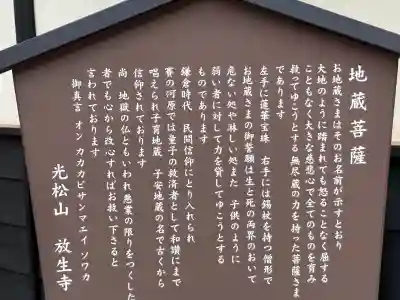 地蔵菩薩
お地蔵さまはそのお名前が示すとおり
大地のように踏まれても怒ることなく屈する
こともなく大きな慈悲心で全てのものを育み
救ってゆこうとする無尽蔵の力を持った菩薩さま
であります
左手に蓮華宝珠　右手には錫杖を持つ僧形で
お地蔵さまの御誓願は生と死の両界のおいて
危ない処や淋しい処また　子供のように
弱い者に対して力を貸してゆこうとする
ものであります
鎌倉時代　民間信仰にとり入れられ
賽の河原では童子の救済者として和讃にまで
唱えられ子育地蔵　子安地蔵の名で古くから
信仰されております
尚　地獄の仏ともいわれ悪業の限りをつくした
者でも心から改心すればお救い下さると
言われております
御真言　オン カカカビサンマエイ ソワカ
光松山　放生寺